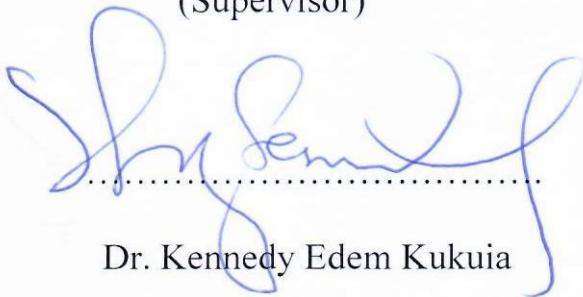 (Supervisor)
........................................
Dr. Kennedy Edem Kukuia